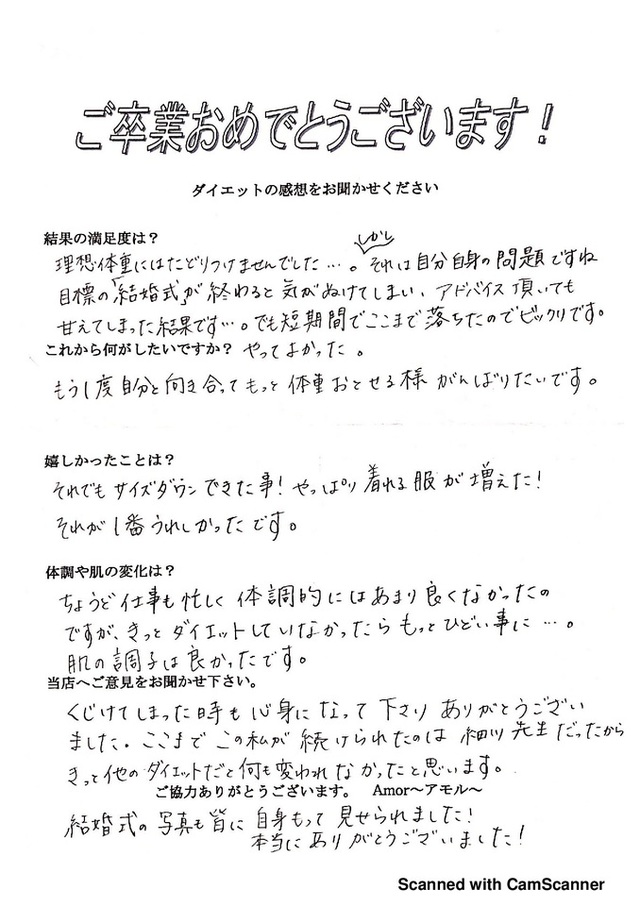 ご卒業おめでとうございます！
ダイエットの感想をお聞かせください
結果の満足度は？
しかし
理想体重にはたどりつけませんでした…。それは自分自身の問題ですね
目標の「結婚式」が終わると気がぬけてしまい、アドバイス頂いても
甘えてしまった結果です…。でも短期間でここまで落ちたのでビックリです。
これから何がしたいですか？ やってよかった。
もう1度自分と向き合ってもっと体重おとせる様がんばりたいです。
嬉しかったことは？
それでもサイズダウンできた事！やっぱり着れる服が増えた！
それが1番うれしかったです。
体調や肌の変化は？
ちょうど仕事も忙しく体調的にはあまり良くなかったの
ですが、きっとダイエットしていなかったらもっとひどい事に…。
肌の調子は良かったです。
当店へご意見をお聞かせ下さい。
くじけてしまった時も心身になって下さりありがとうござい
ました。ここまでこの私が続けられたのは細川先生だったから
きっと他のダイエットだと何も変われなかったと思います。
ご協力ありがとうございます。 Amor～アモル～
結婚式の写真も皆に自身もって見せられました！
本当にありがとうございました！
Scanned with CamScanner